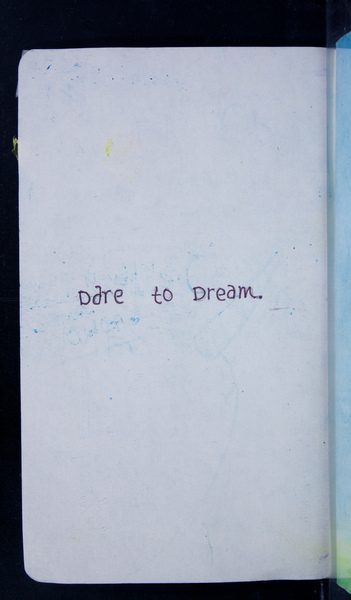 Dare to Dream.